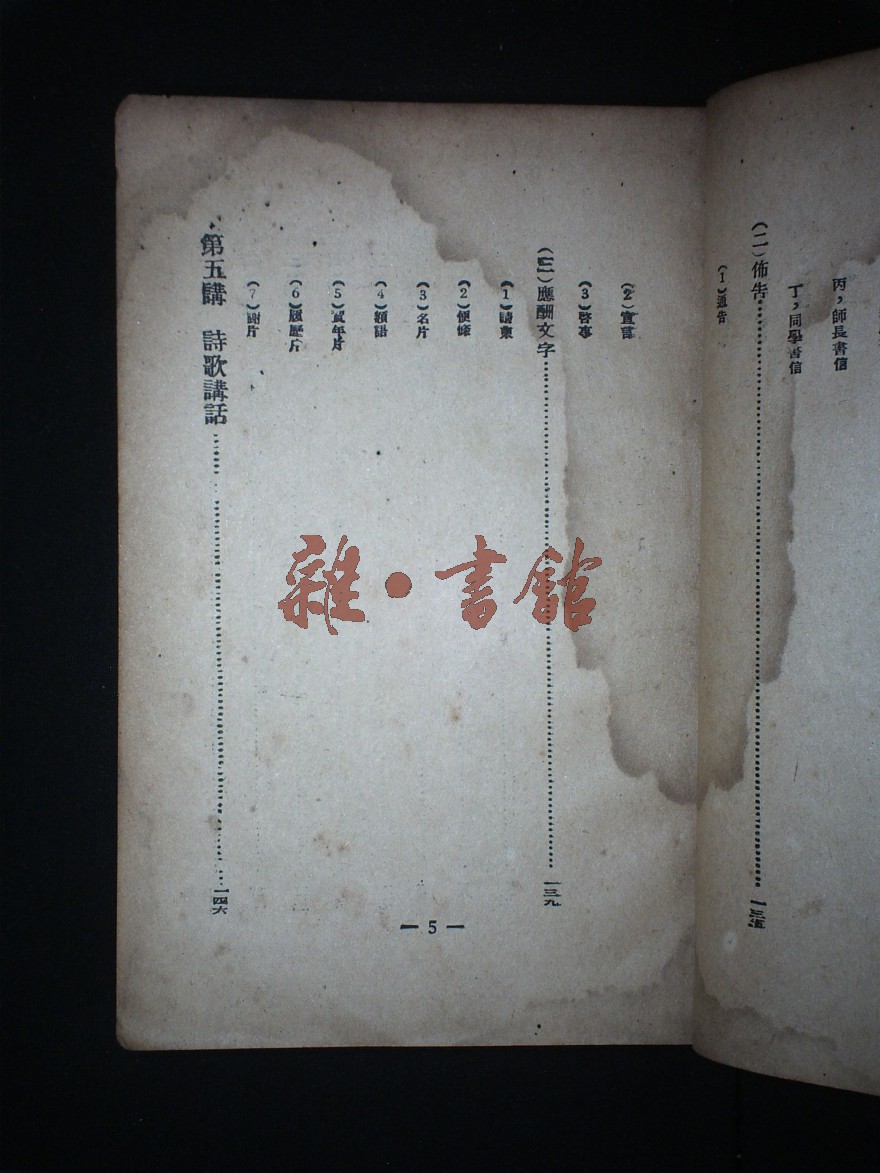 丙，師長書信
丁，同學書信
（二）佈告……一三五
（1）通告
（2）宣言
（3）啓事
（三）應酬文字……一三九
（1）請柬
（2）便條
（3）名片
（4）類語
（5）賀年片
（6）履歷片
（7）謝片
第五講　詩歌講話……一四六
— 5 —
雜·書館